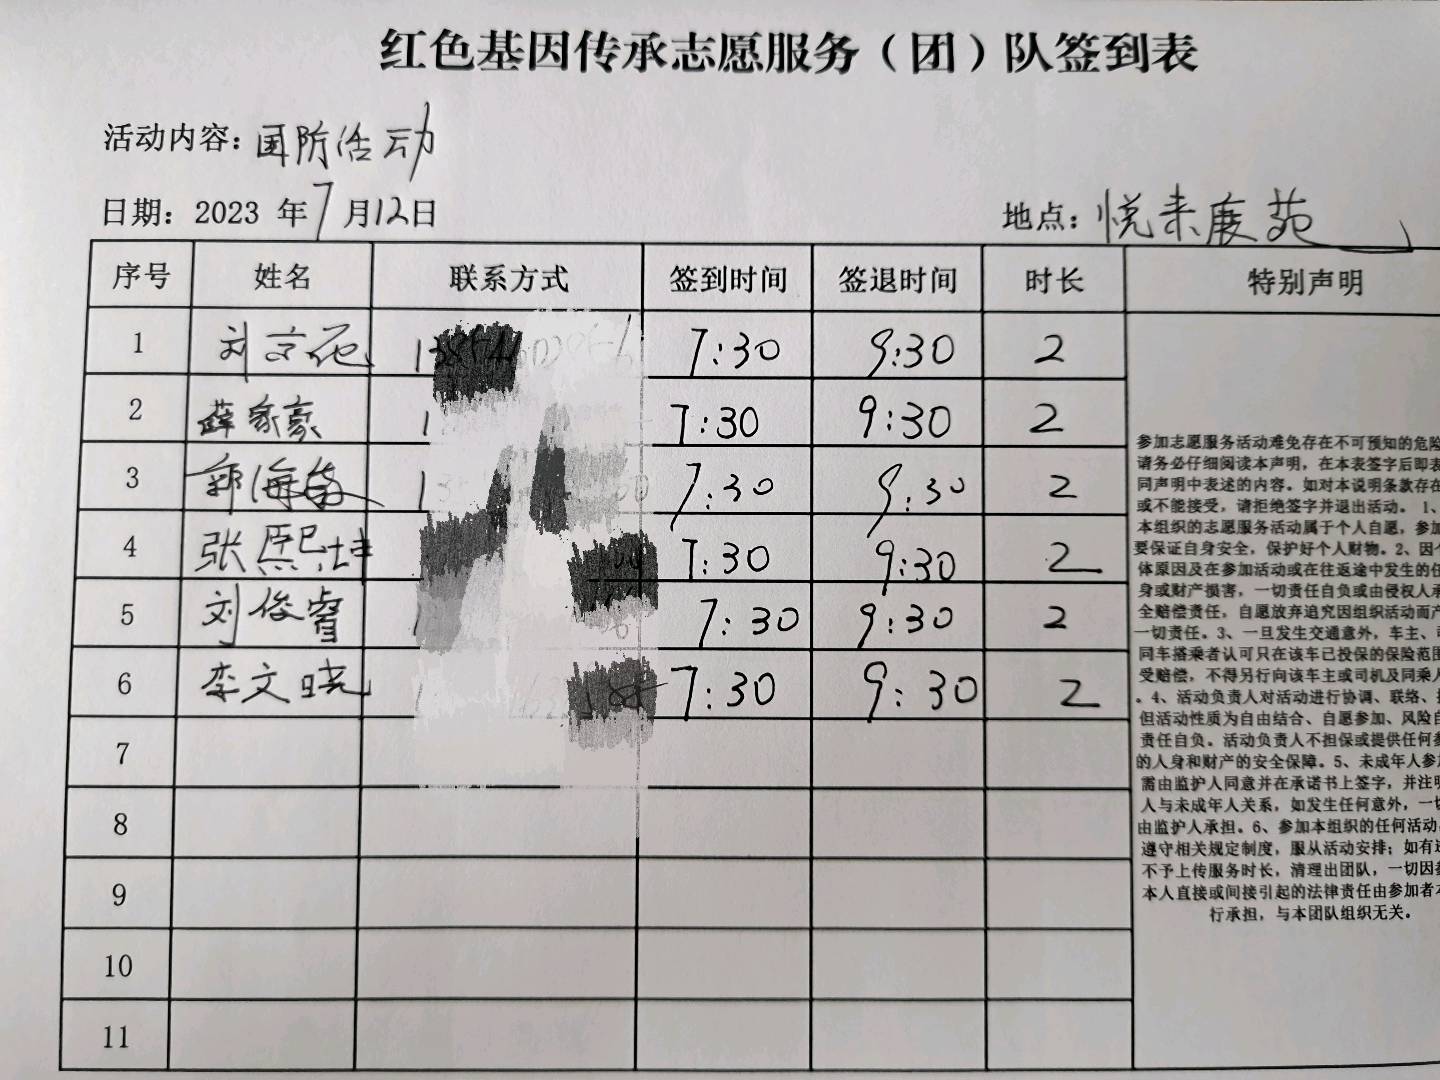 红色基因传承志愿服务（团）队签到表
活动内容：国防活动
日期：2023 年7月12日
地点：悦来康苑
序号 姓名 联系方式 签到时间 签退时间 时长 特别声明
1 刘 7:30 9:30 2
2 薛家豪 7:30 9:30 2
3 郭海 7:30 9:30 2
4 张熙坤 7:30 9:30 2
5 刘俊睿 7:30 9:30 2
6 李文晓 7:30 9:30 2
7
8
9
10
11
参加志愿服务活动难免存在不可预知的危险
请务必仔细阅读本声明，在本表签字后即表
同声明中表述的内容。如对本说明条款存在
或不能接受，请拒绝签字并退出活动。 1、
本组织的志愿服务活动属于个人自愿，参加
要保证自身安全，保护好个人财物。2、因个
体原因及在参加活动或在往返途中发生的任
身或财产损害，一切责任自负或由侵权人承
全赔偿责任，自愿放弃追究因组织活动而产
一切责任。3、一旦发生交通意外，车主、司
同车搭乘者认可只在该车已投保的保险范围
受赔偿，不得另行向该车主或司机及同乘人
。4、活动负责人对活动进行协调、联络、
但活动性质为自由结合、自愿参加、风险自
责任自负。活动负责人不担保或提供任何参
的人身和财产的安全保障。5、未成年人参加
需由监护人同意并在承诺书上签字，并注明
人与未成年人关系，如发生任何意外，一切
由监护人承担。6、参加本组织的任何活动
遵守相关规定制度，服从活动安排；如有违
不予上传服务时长，清理出团队，一切因参
本人直接或间接引起的法律责任由参加者本
行承担，与本团队组织无关。